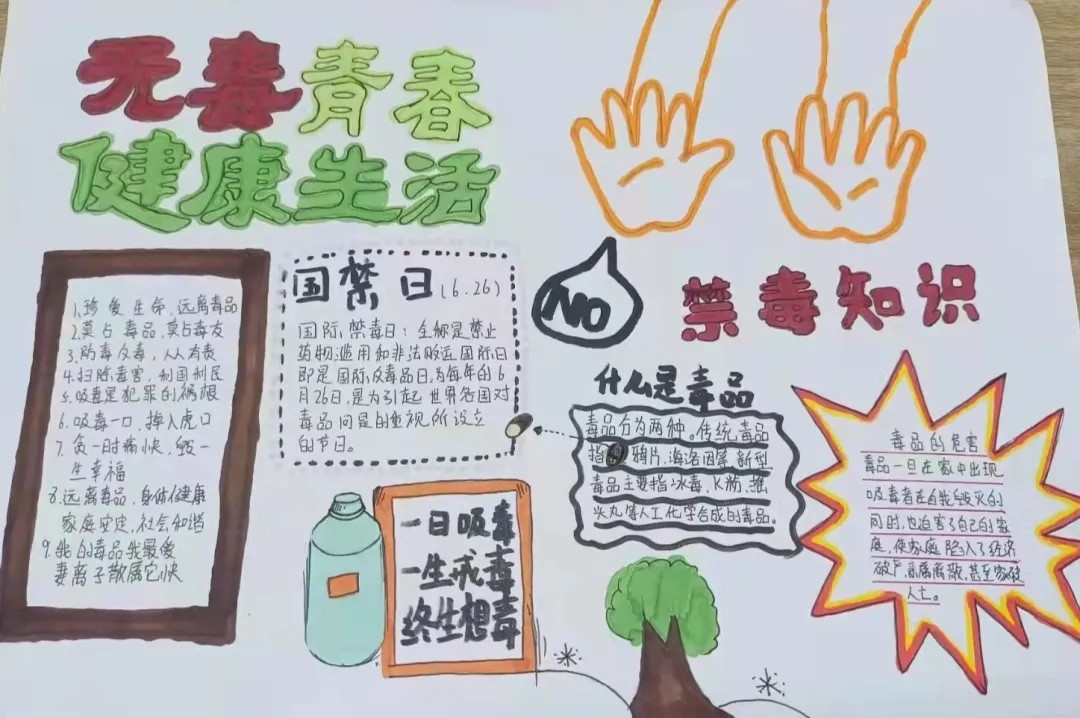 无毒青春
健康生活
1.珍爱生命,远离毒品
2.莫占毒品,莫占毒友
3.防毒反毒,人人有责
4.扫除毒害,利国利民
5.吸毒是犯罪的祸根
6.吸毒一口,掉入虎口
7.贪一时痛快,毁一
生幸福
8.远离毒品,身体健康
家庭安定,社会和谐
9.我的毒品我最爱
妻离子散属它快
国禁日(6.26)
国际禁毒日:全称是禁止
药物滥用和非法贩运国际日
即是国际反毒品日,为每年的6
月26日,是为引起世界各国对
毒品问题的重视所设立
的节日。
一日吸毒
一生戒毒
终生想毒
NO
禁毒知识
什么是毒品
毒品分为两种。传统毒品
指鸦片,海洛因等,新型
毒品主要指冰毒、K粉、摇
头丸等人工化学合成的毒品。
毒品的危害
毒品一旦在家中出现
吸毒者在自我毁灭的
同时,也迫害了自己的家
庭,使家庭陷入了经济
破产,亲属离散,甚至家破
人亡。